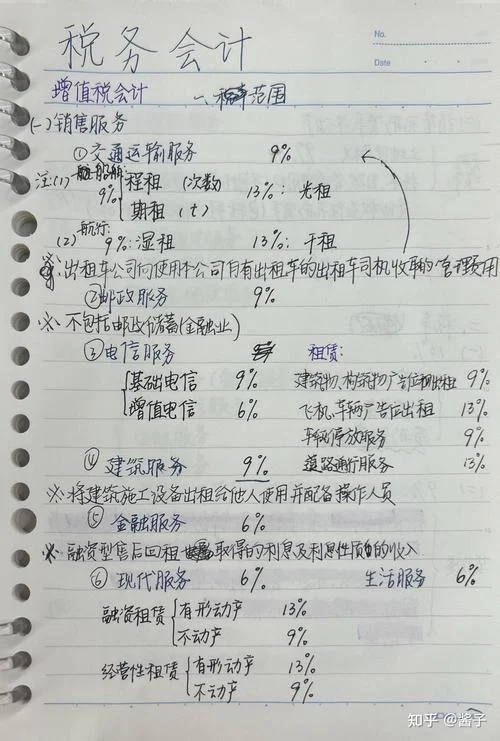 税务会计
No.
Date
增值税会计 一、税率范围
(一)销售服务
①交通运输服务 9%
注:(1) 船舶 9% 程租 (次数) 13%: 光租
期租 (t)
(2) 航行: 9%: 湿租 13%: 干租
※: 出租车公司向使用本公司自有出租车的出租车司机收取的管理费用
②邮政服务 9%
※: 不包括邮政储蓄(金融业)
③电信服务 租赁:
基础电信 9% 建筑物、构筑物广告位出租 9%
增值电信 6% 飞机、车辆广告位出租 13%
车辆停放服务 9%
④ 建筑服务 9% 道路通行服务 13%
※将建筑施工设备出租给他人使用并配备操作人员
⑤ 金融服务 6%
※ 融资型售后回租 取得的利息及利息性质的收入
⑥ 现代服务 6% 生活服务 6%
融资租赁 有形动产 13%
不动产 9%
经营性租赁 有形动产 13%
不动产 9%
知乎 @酱子